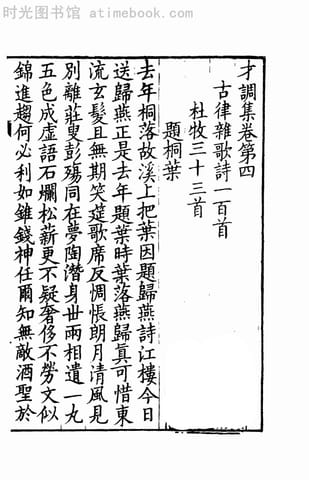 时光图书馆 atimebook.com
才調集卷第四
古律雜歌詩一百首
杜牧三十三首
題桐葉
去年桐落故溪上把葉因題歸燕詩江樓今日
送歸燕正是去年題葉時葉落燕歸眞可惜東
流玄髮且無期笑筵歌席反惆悵朗月清風見
別離莊叟彭殤同在夢陶潛身世兩相遺一丸
五色成虛語石爛松薪更不疑奢侈不勞文似
錦進趨何必利如錐錢神任爾知無敵酒聖於